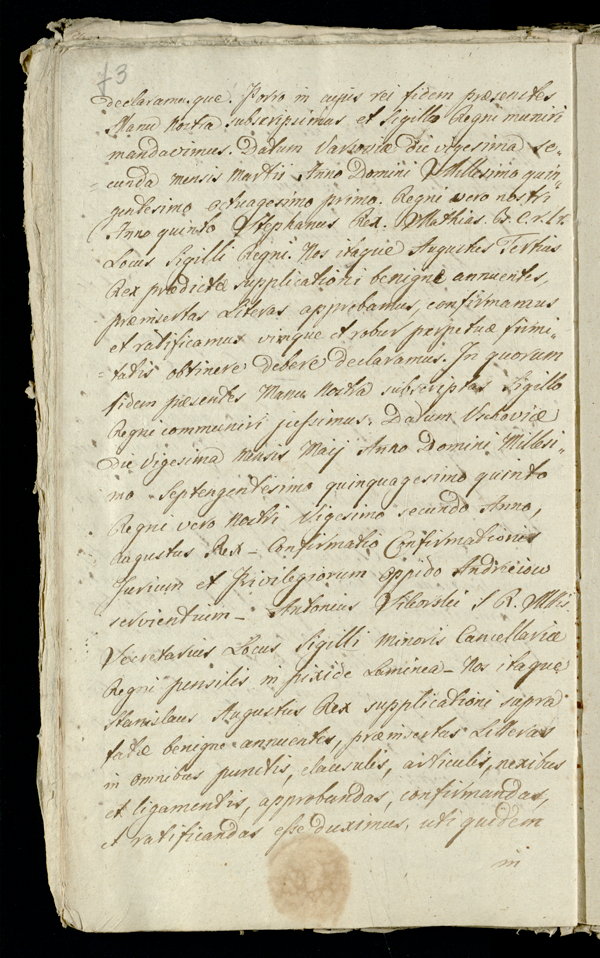 73
declaramusque. Porro in cujus rei fidem præsentes
Manu Nostra subscripsimus et Sigillo Regni muniri
mandavimus. Datum Varsoviæ die vigesima se„
„cunda mensis Martii Anno Domini Millesimo quin„
gentesimo octuagesimo primo. Regni vero nostri
Anno quinto Stephanus Rex. Mathias.
Locus Sigilli Regni. Nos itaque Augustus Tertius
Rex prædictæ supplicationi benigne annuentes,
præinsertas Literas approbamus, confirmamus
et ratificamus vimque et robur perpetuæ firmi„
„tatis obtinere debere declaramus. In quorum
fidem præsentes Manu Nostra subscriptas Sigillo
Regni communiri jussimus. Datum Varsoviæ
Die Vigesima Mensis Maij Anno Domini Millesi„
mo Septengentesimo quinquagesimo quinto
Regni vero Nostri Vigesimo secundo Anno,
Augustus Rex – Confirmatio Confirmationis
Jurium et Privilegiorum oppido Andreiow
servientium – Antonius S. R. Mtis
Secretarius Locus Sigilli minoris Cancellariæ
Regni pensilis in pixide laminea – Nos itaque
Stanislaus Augustus Rex supplicationi supra
tatæ benigne annuentes, præinsertas Litteras
in omnibus punctis, clausulis, articulis, nexibus
et ligamentis, approbandas, confirmandas,
et ratificandas esse duximus, uti quidem
in